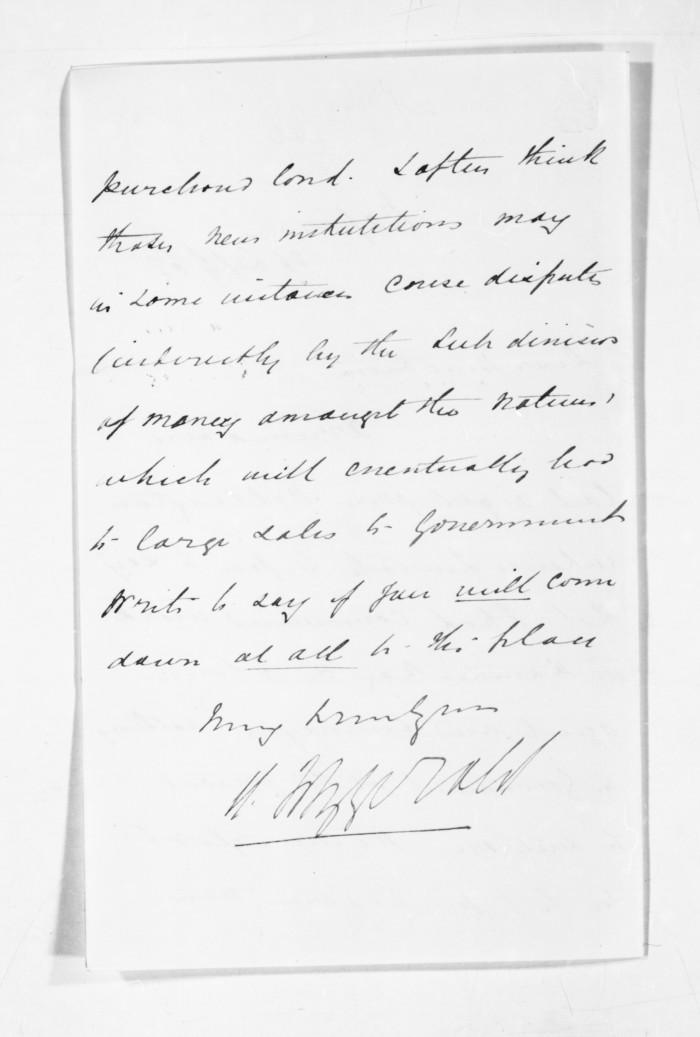 purchased land. I often think
these new institutions may
in some instances cause disputes
(indirectly by the sub division
of money amongst the natives)
which will eventually lead
to large sales to Government
Write to say if you will come
down at all to this place
Very truly yours
W. Fitzgerald